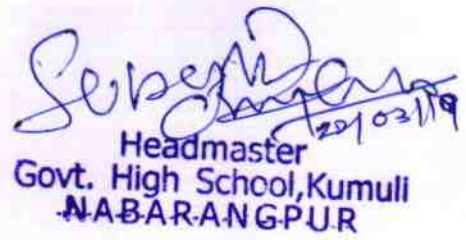 22/03/19
Headmaster
Govt. High School,Kumuli
NABARANGPUR